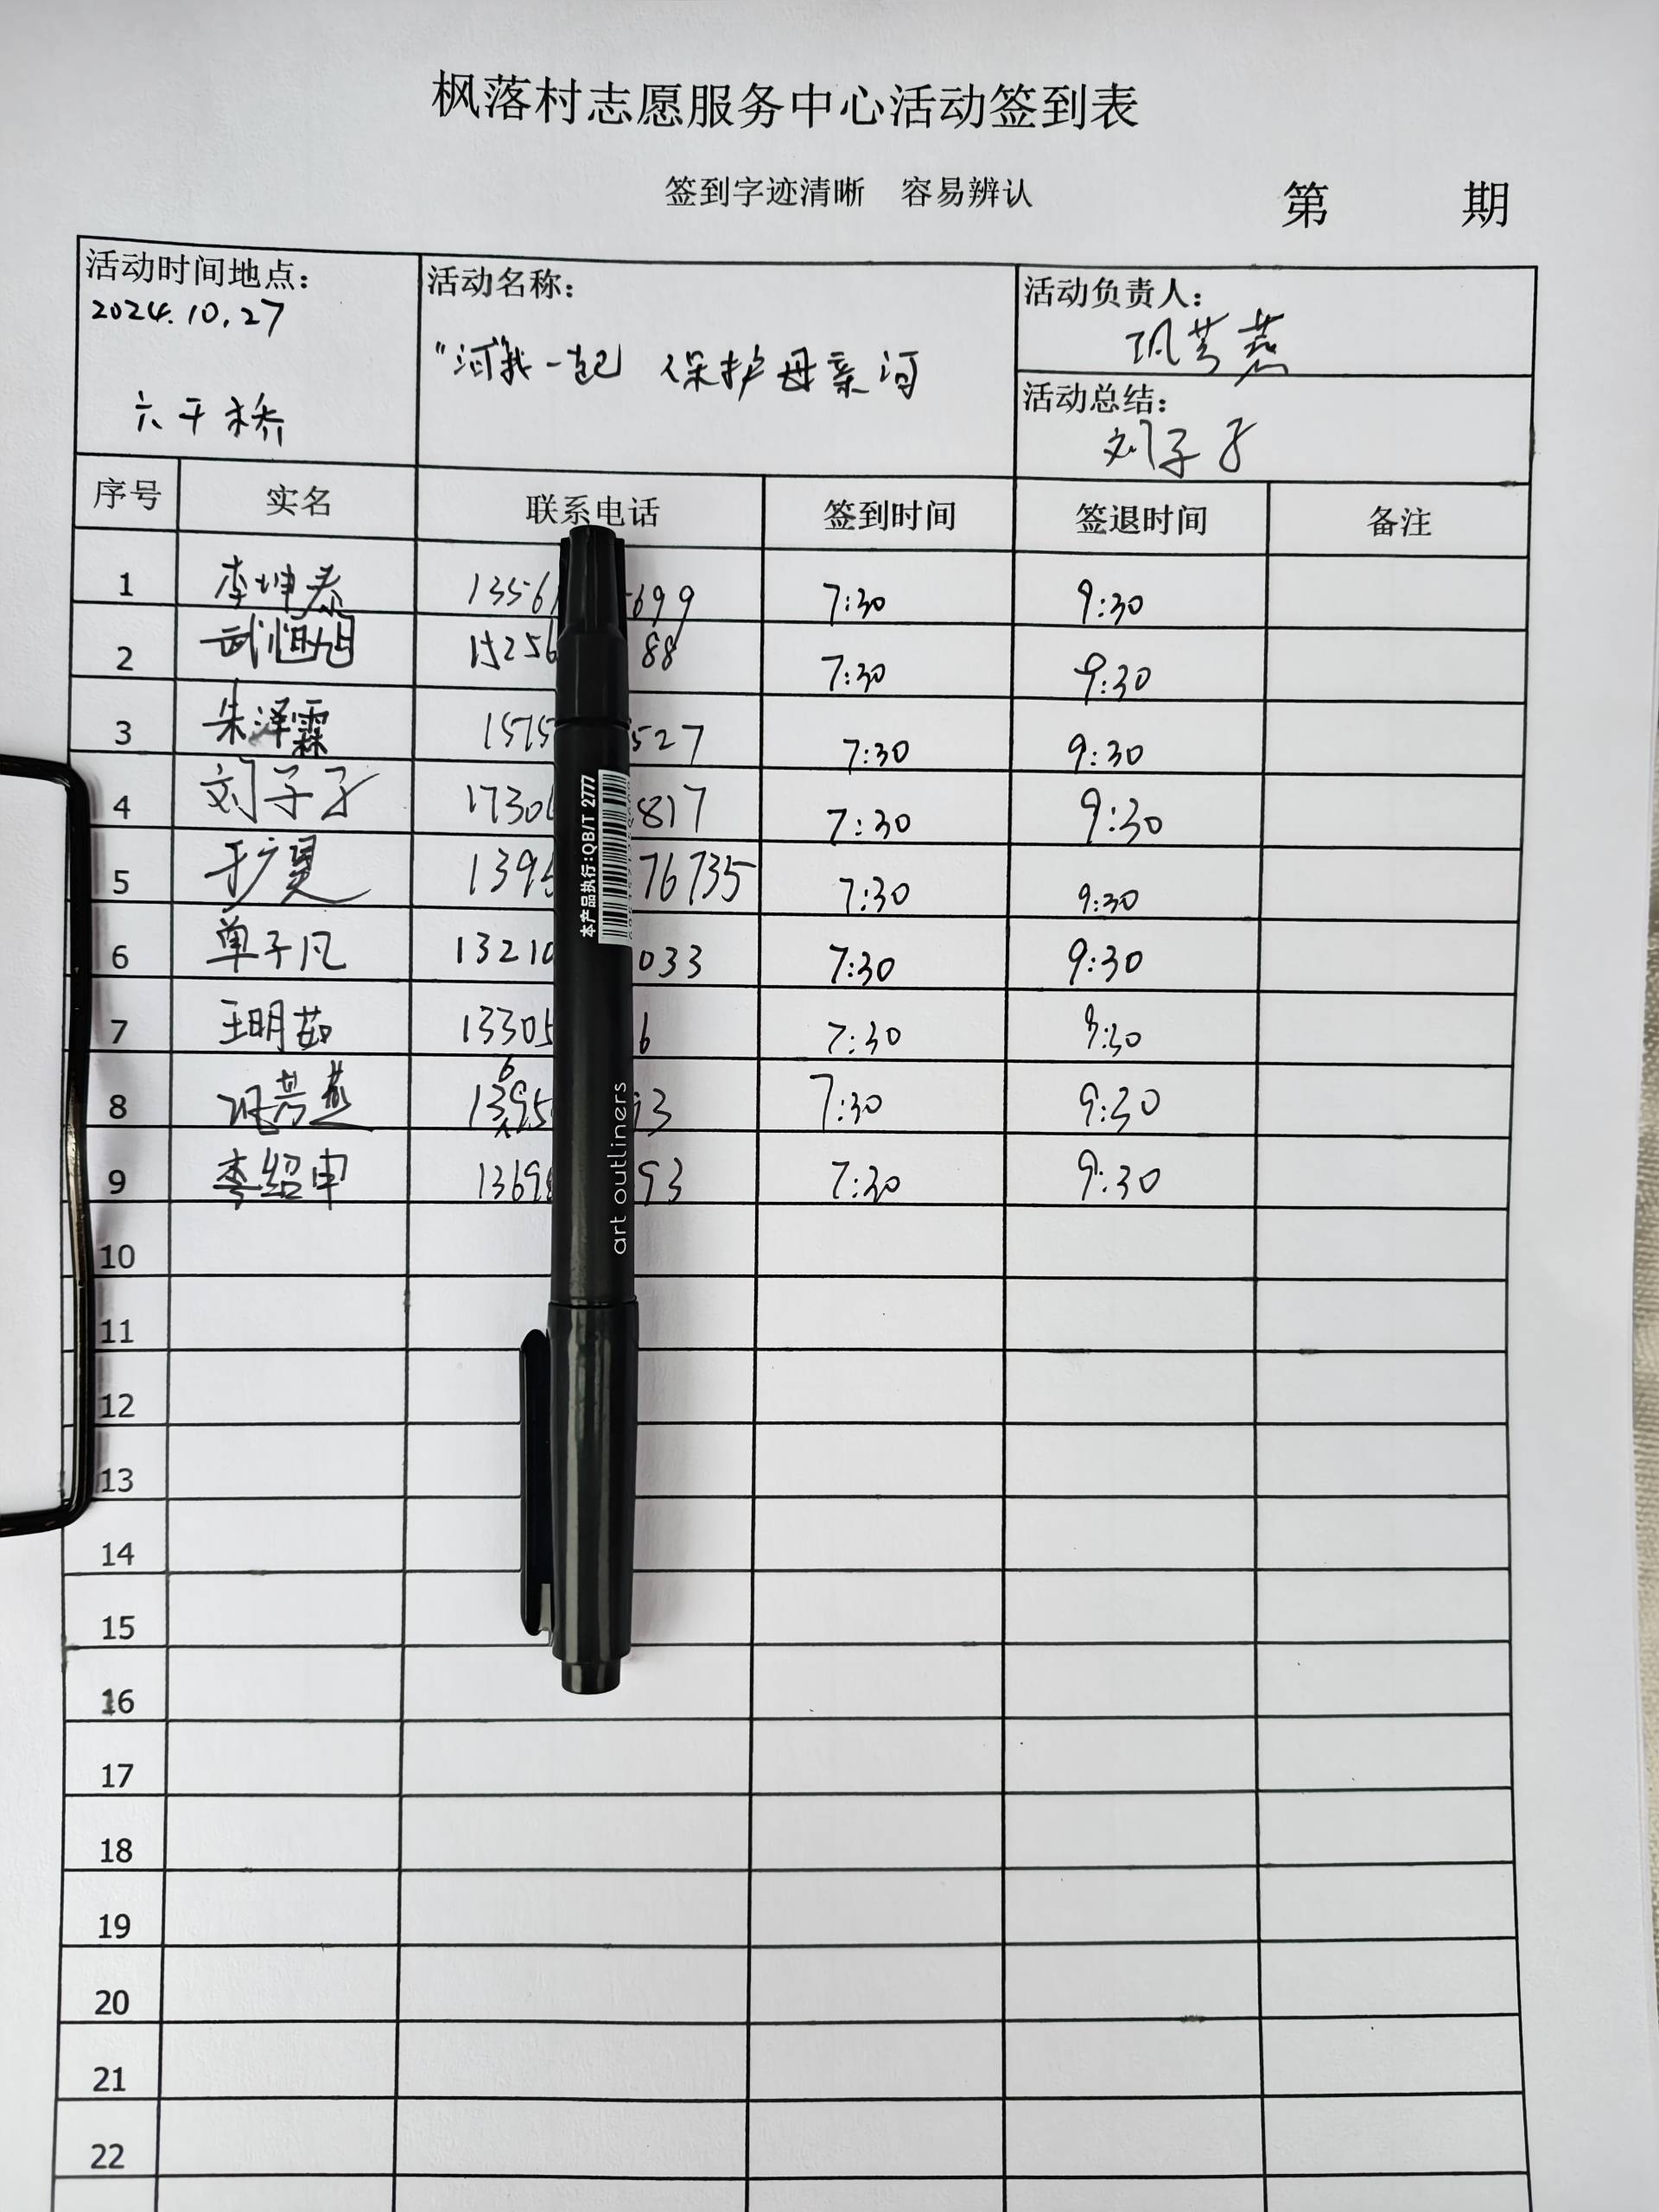 枫落村志愿服务中心活动签到表
签到字迹清晰 容易辨认
第 期
活动时间地点：
2024.10.27
六干桥
活动名称：
"河"我一起 保护母亲河
活动负责人：
芳燕
活动总结：
刘子子
序号 实名 联系电话 签到时间 签退时间 备注
1 李坤泰 1356 699 7:30 9:30
2 武恒旭 15256 88 7:30 9:30
3 朱泽霖 1515 527 7:30 9:30
4 刘子子 1730 817 7:30 9:30
5 于广夏 139 76735 7:30 9:30
6 单子凡 13210 033 7:30 9:30
7 王明茹 13305 6 7:30 9:30
8 芳燕 3 7:30 9:30
9 李绍申 1369 93 7:30 9:30
10
11
12
13
14
15
16
17
18
19
20
21
22
本产品执行:QB/T 2777
art outliners